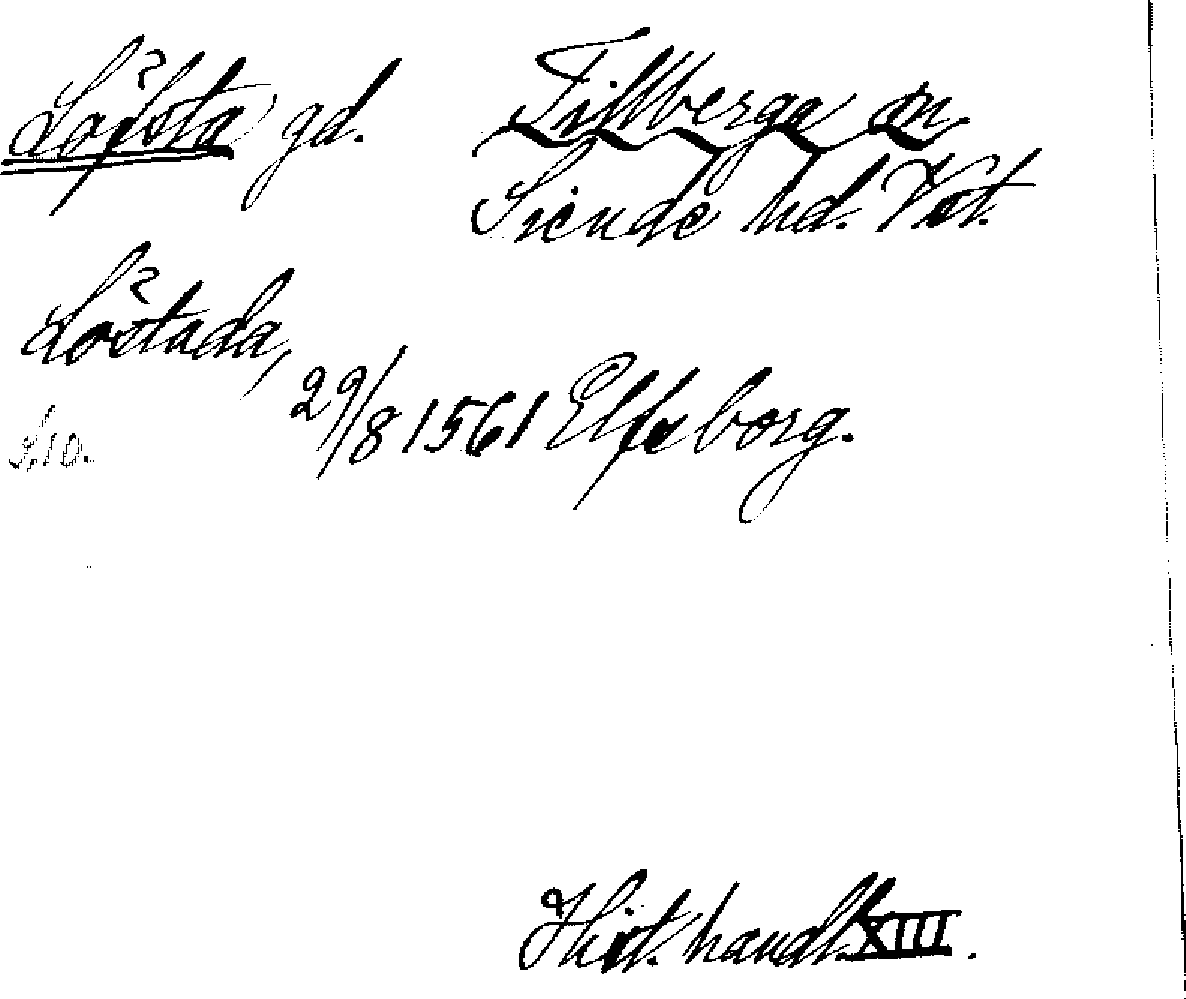 Löfsta gd.
Tillberga sn
Siende hd. Vst.
Löstada,
29/8 1561 Elfsborg.
S. 10.
Hist. handl. XIII.